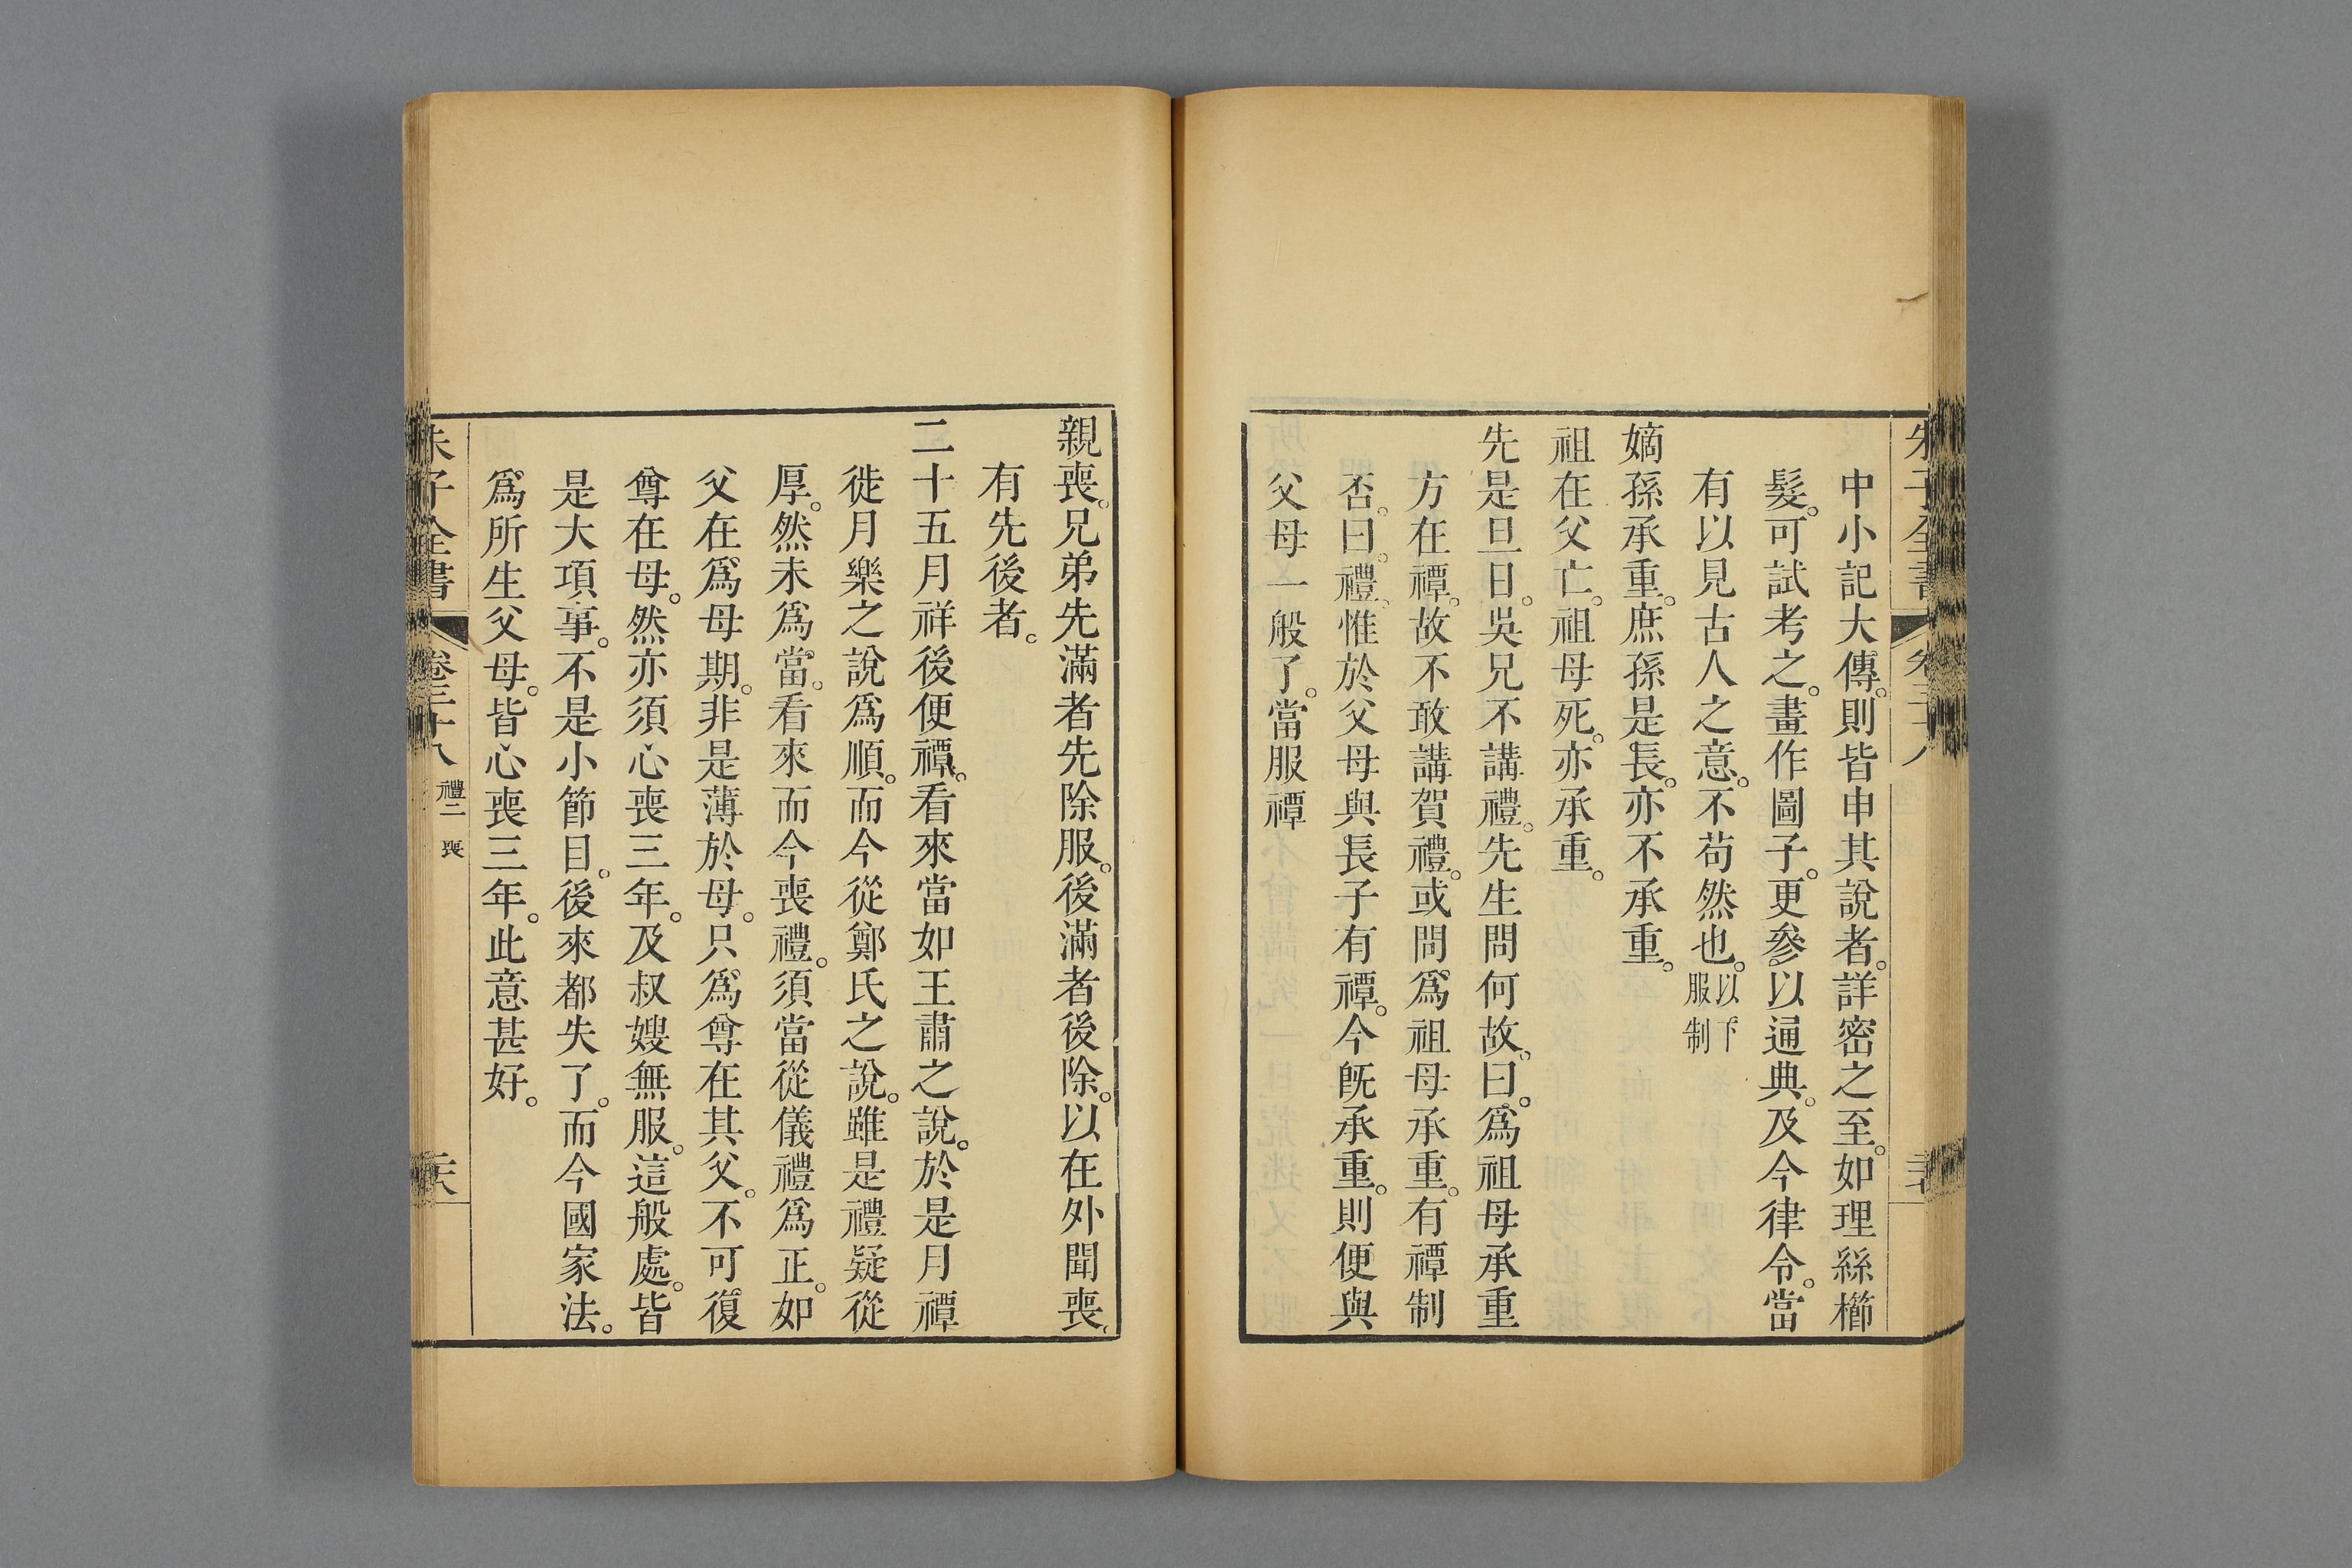 中小記大傳。則皆申其說者。詳密之至。如理絲櫛
髮。可試考之。畫作圖子。更參以通典。及今律令。當
有以見古人之意。不苟然也。以下服制
嫡孫承重。庶孫是長。亦不承重。
祖在父亡。祖母死。亦承重。
先是旦日。吳兄不講禮。先生問何故。曰。爲祖母承重
方在禫。故不敢講賀禮。或問爲祖母承重。有禫制
否。曰。禮。惟於父母與長子有禫。今旣承重。則便與
父母一般了。當服禫
親喪。兄弟先滿者先除服。後滿者後除。以在外聞喪、
有先後者。
二十五月祥後便禫。看來當如王肅之說。於是月禫
徙月樂之說爲順。而今從鄭氏之說。雖是禮疑從
厚。然未爲當。看來而今喪禮。須當從儀禮爲正。如
父在爲母期。非是薄於母。只爲尊在其父。不可復
尊在母。然亦須心喪三年。及叔嫂無服。這般處。皆
是大項事。不是小節目。後來都失了。而今國家法。
爲所生父母。皆心喪三年。此意甚好。
朱子全書 卷三十八 禮二 喪